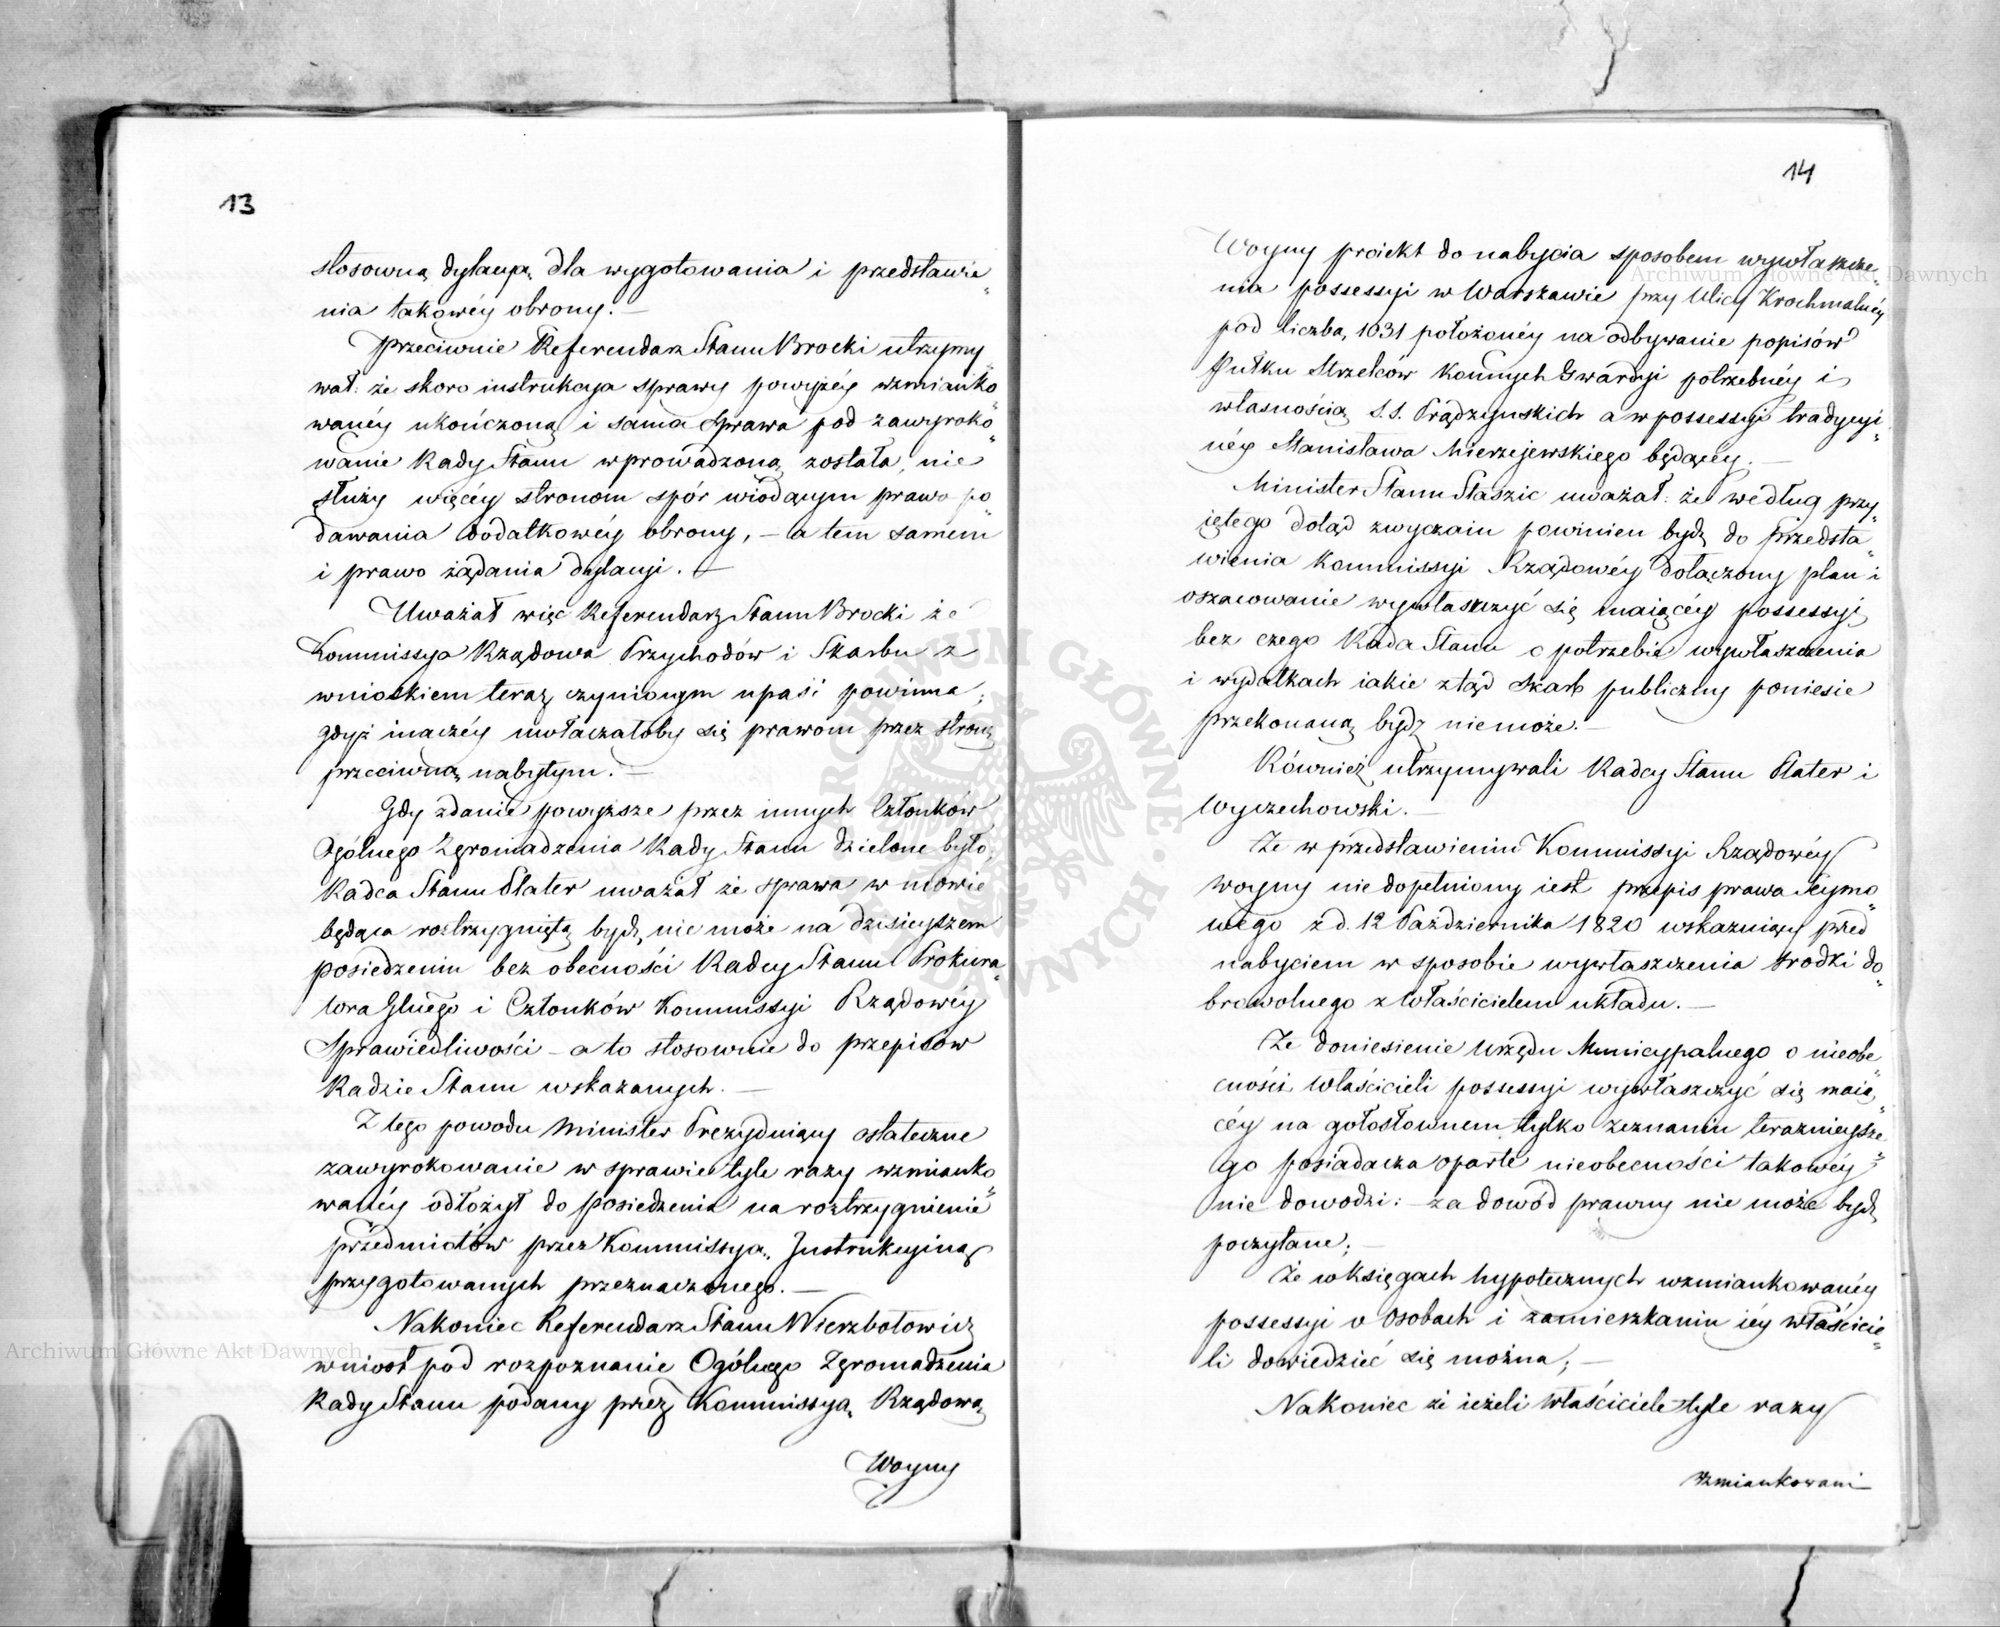 13
stosowną dylacyą dla wygotowania i przedstawie„
nia takowéy obrony. —
Przeciwnie Referendarz Stanu Brocki utrzymy„
wał: że skoro instrukcya sprawy powyżéy wzmianko„
wanéy ukończoną i sama sprawa pod zawyroko„
wanie Rady Stanu wprowadzoną została, nie
służy więcéy stronom spór wiodącym prawo po„
dawania dodatkowéy obrony, — a tem samem
i prawo żądania dylacyi. —
Uważał więc Referendarz Stanu Brocki że
Kommissya Rządowa Przychodów i Skarbu z
wnioskiem teraz czynionym upaść powinna;
gdyż inaczéy uwłaczałoby się prawom przez stronę
przeciwną nabytym. —
Gdy zdanie powyższe przez innych Członków
Ogólnego Zgromadzenia Rady Stanu dzielone było,
Radca Stanu Plater uważał że sprawa w mowie
będąca roztrzygniętą bydź nie może na dzisieyszem
posiedzeniu bez obecności Radcy Stanu Prokura„
tora Glnego i Członków Kommissyi Rządowéy
Sprawiedliwości — a to stosownie do przepisów
Radzie Stanu wskazanych. —
Z tego powodu Minister Prezyduiący ostateczne
zawyrokowanie w sprawie tyle razy wzmianko„
wanéy odłożył do posiedzenia na roztrzygnienie
przedmiotów przez Kommissyą Instrukcyiną
przygotowanych przeznaczonego. —
Nakoniec Referendarz Stanu Wierzbołowicz
wniosł pod rozpoznanie Ogólnego Zgromadzenia
Rady Stanu podany przez Kommissyą Rządową
Woyny
14
Woyny proiekt do nabycia sposobem wywłaszcze„
nia possessyi w Warszawie przy Ulicy Krochmalnéy
pod liczbą 1031 położonéy na odbywanie popisów
Pułku Strzelców Konnych Gwardyi potrzebnéy i
własnością S. S. Prądzyńskich a w possessyi tradycyi„
néy Stanisława Mierzejewskiego będącéy. —
Minister Stanu Staszic uważał: że według przy„
iętego dotąd zwyczaiu powinien bydź do Przedsta„
wienia Kommissyi Rządowéy dołączony plan i
oszacowanie wywłaszczyć się maiącéy possessyi,
bez czego Rada Stanu o potrzebie wywłaszczenia
i wydatkach iakie ztąd Skarb publiczny poniesie
przekonaną bydź nie może. —
Również utrzymywali Radcy Stanu Plater i
Wyczechowski. —
Że w przedstawieniu Kommissyi Rządowéy
Woyny nie dopełniony iest przepis prawa Seymo„
wego z d. 12 Października 1820 wskazuiący przed
nabyciem w sposobie wywłaszczenia środki do„
browolnego z właścicielem układu. —
Że doniesienie Urzędu Municypalnego o nieobe„
cności właścicieli possessyi wywłaszczyć się maią„
céy na gołosłownem tylko zeznaniu teraznieysze„
go posiadacza oparte nieobecności takowéy
nie dowodzi: — za dowód prawny nie może bydź
poczytane; —
Że w księgach hypotecznych wzmiankowanéy
possessyi o osobach i zamieszkaniu iéy właścicie„
li dowiedzieć się można; —
Nakoniec że ieżeli właściciele tyle razy
wzmiankowani
Archiwum Główne Akt Dawnych
Archiwum Główne Akt Dawnych
ARCHIWUM GŁÓWNE AKT DAWNYCH